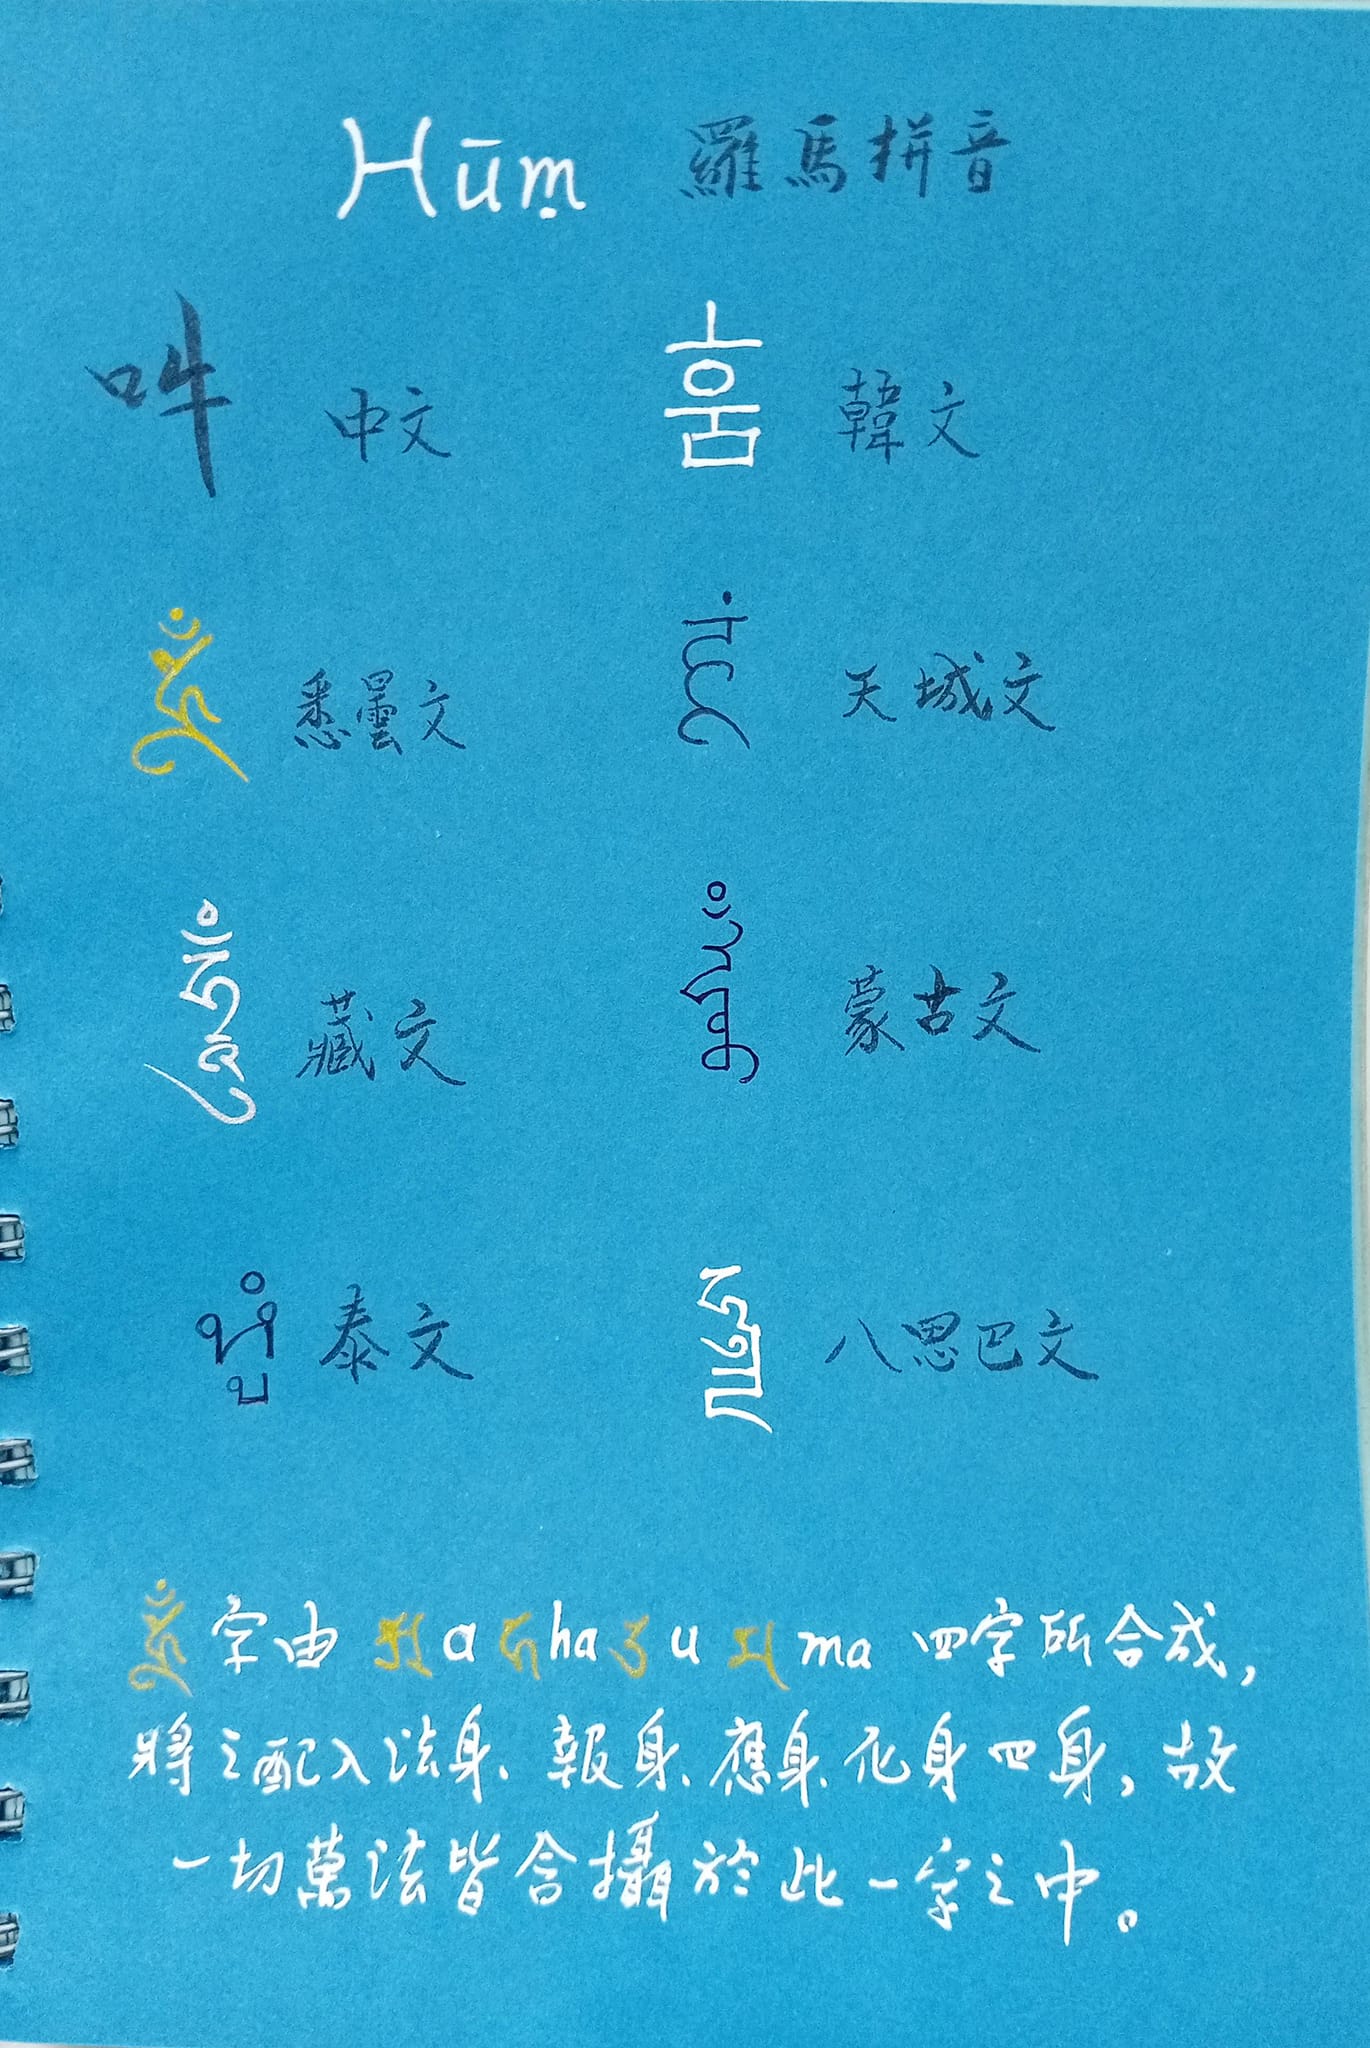 Hūṃ 羅馬拼音
吽 中文 훔 韓文
悉曇文 天城文
ཧཱུྃ 藏文 蒙古文
หุํ 泰文 八思巴文
字由 a ha u ma 四字所合成,
將之配入法身、報身、應身、化身四身,故
一切萬法皆含攝於此一字之中。